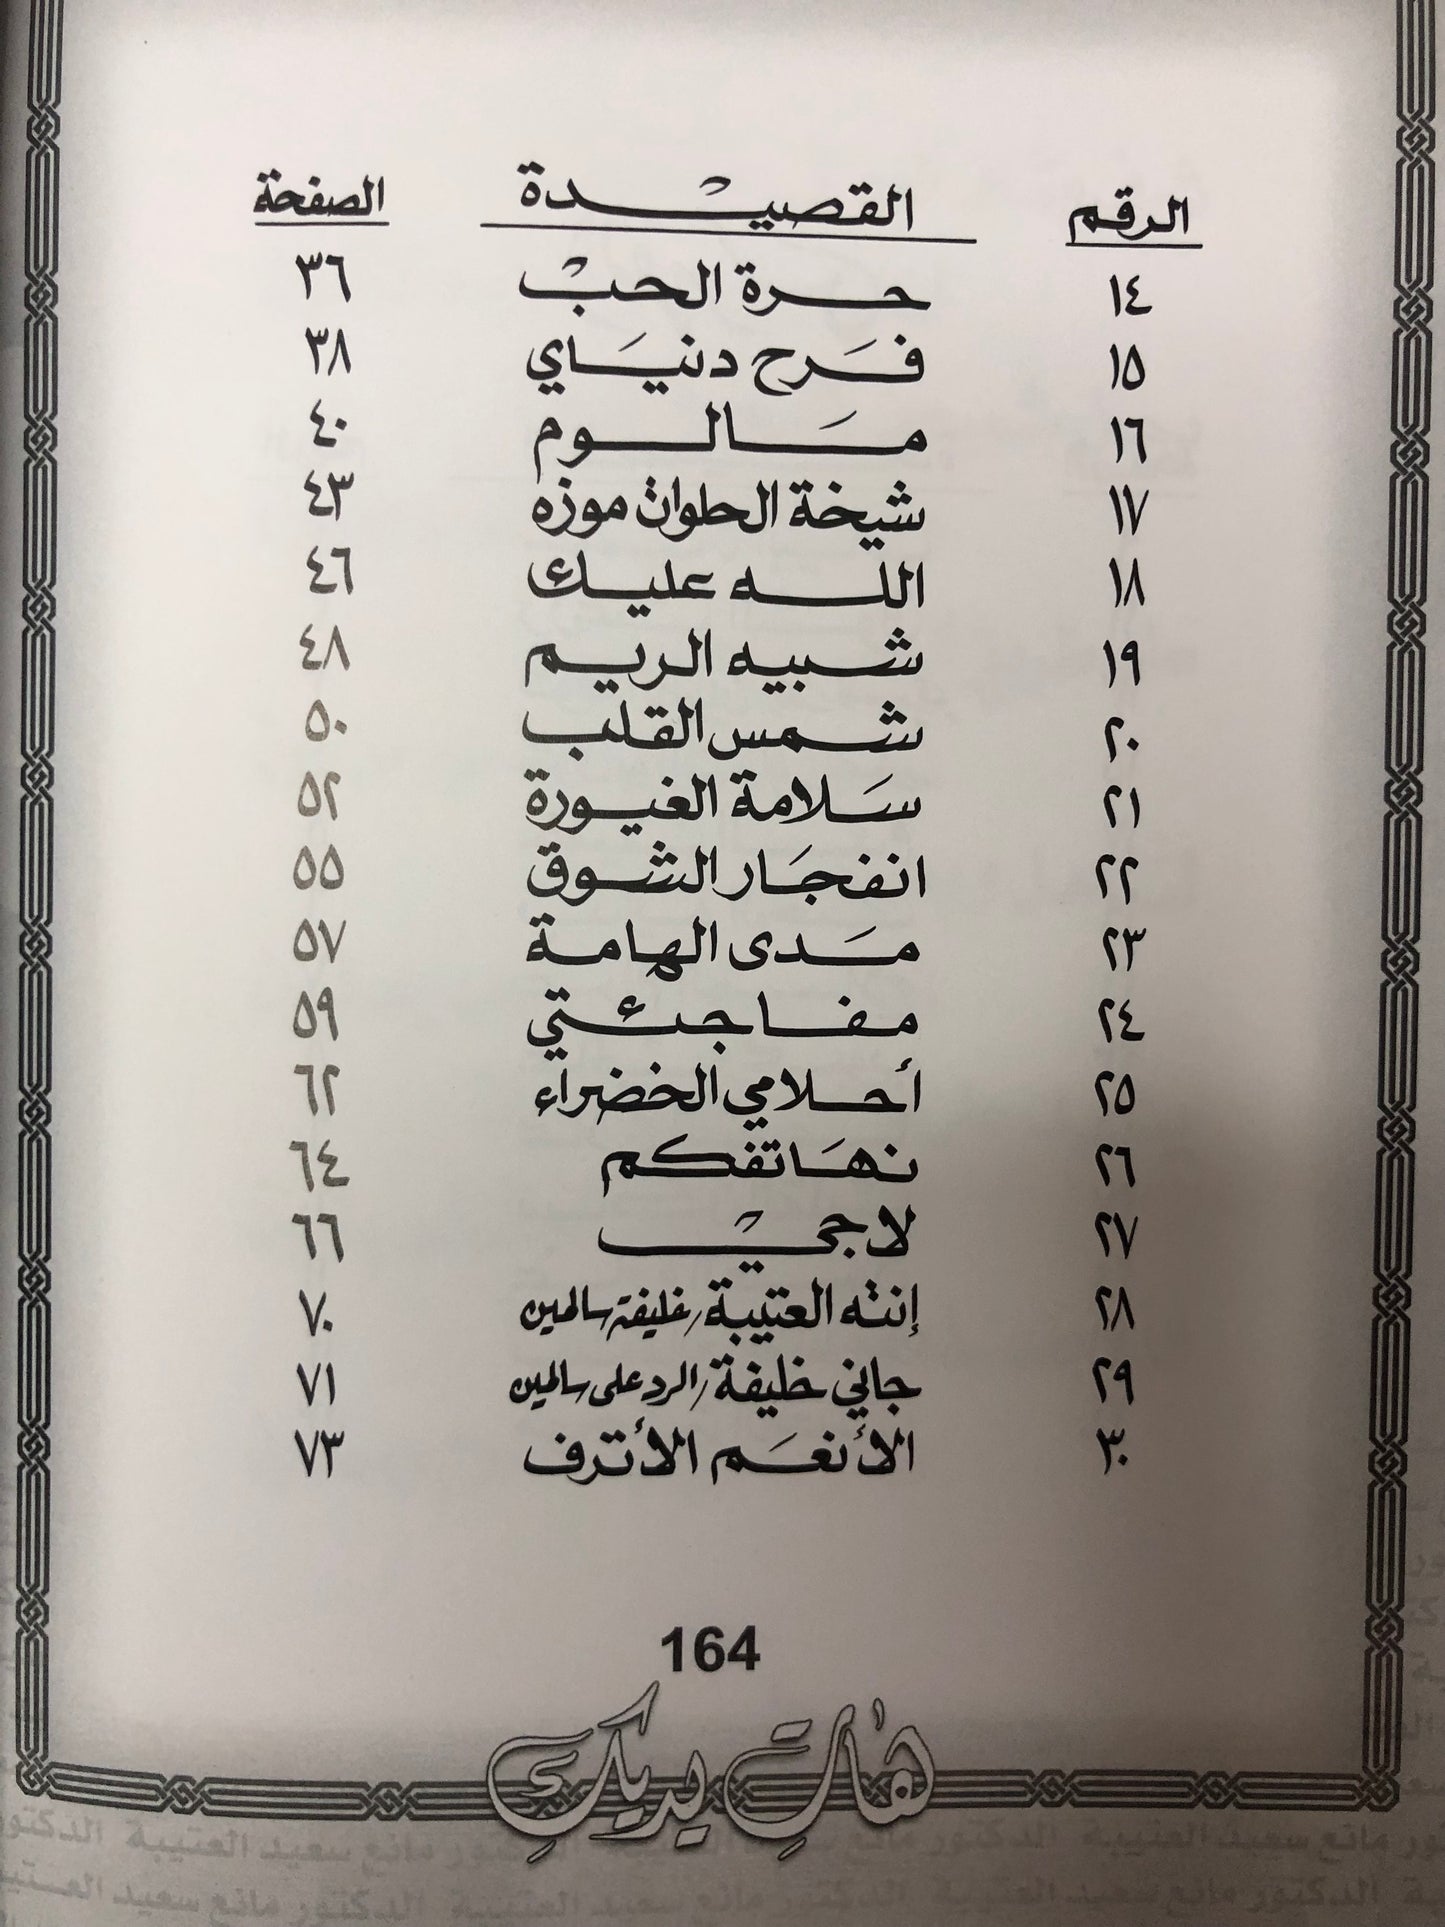 الرقم القصيدة الصفحة
١٤ حرة الحب ٣٦
١٥ فرح دنياي ٣٨
١٦ مالوم ٤٠
١٧ شيخة الحلوات موزه ٤٣
١٨ الله عليك ٤٦
١٩ شبيه الريم ٤٨
٢٠ شمس القلب ٥٠
٢١ سلامة الغيورة ٥٢
٢٢ انفجار الشوق ٥٥
٢٣ مدى الهامة ٥٧
٢٤ مفاجئتي ٥٩
٢٥ أحلامي الخضراء ٦٢
٢٦ نهاتفكم ٦٤
٢٧ لاجي ٦٦
٢٨ إنته العتيبة / خليفة سالمين ٧٠
٢٩ جاني خليفة / الرد على سالمين ٧١
٣٠ الأنعم الأترف ٧٣
164
هات يديك
مانع سعيد العتيبة الدكتور مانع سعيد العتيبة الدكتور
الدكتور مانع سعيد العتيبة الدكتور مانع سعيد العتيبة الدكتور مانع سعيد